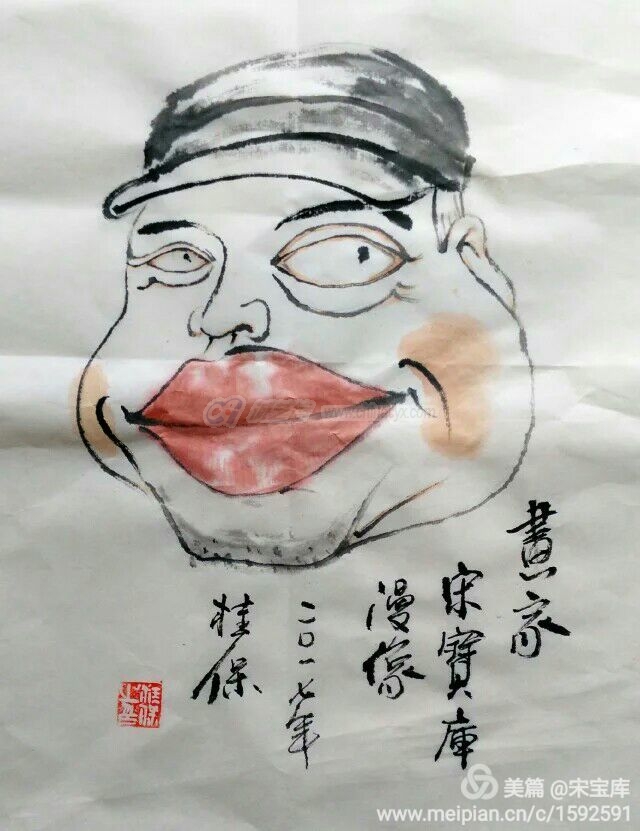 畫家
宋寶庫
漫像
二〇一七年
桂保
美篇 @宋宝库
www.meipian.cn/c/1592591